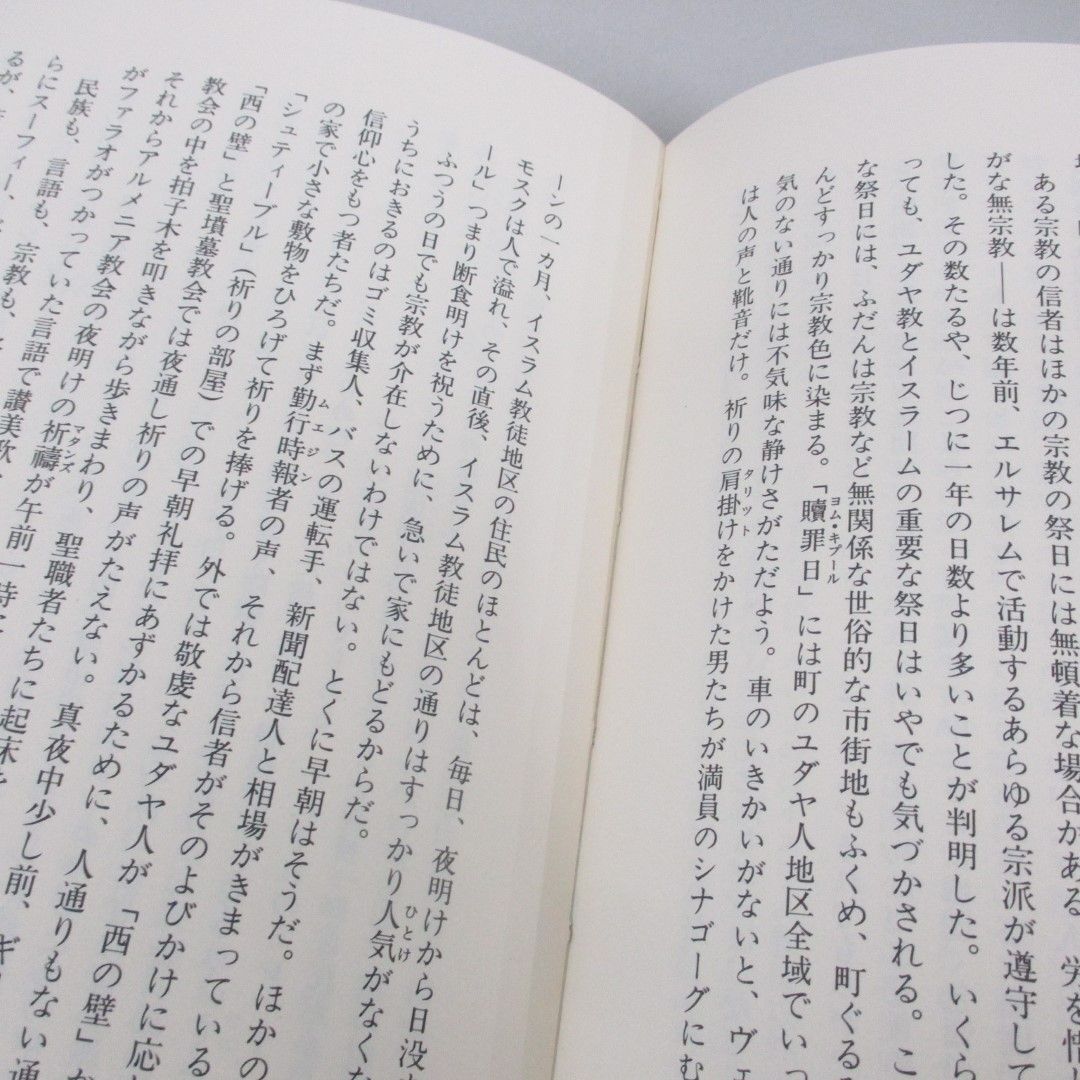 ある宗教の信者はほかの宗教の祭日には無頓着な場合がある。労を惜し
がな無宗教――は数年前、エルサレムで活動するあらゆる宗派が遵守して
した。その数たるや、じつに一年の日数より多いことが判明した。いくら
っても、ユダヤ教とイスラームの重要な祭日はいやでも気づかされる。こ
な祭日には、ふだんは宗教など無関係な世俗的な市街地もふくめ、町ぐる
ヨム・キプール
んどすっかり宗教色に染まる。「贖罪日」には町のユダヤ人地区全域でいっ
気のない通りには不気味な静けさがただよう。車のいきかいがないと、ヴェ
タリット
は人の声と靴音だけ。祈りの肩掛けをかけた男たちが満員のシナゴーグにむ
ーンの一カ月、イスラム教徒地区の住民のほとんどは、毎日、夜明けから日没
モスクは人で溢れ、その直後、イスラム教徒地区の通りはすっかり人気がなくな
ひとけ
ール」つまり断食明けを祝うために、急いで家にもどるからだ。
ふつうの日でも宗教が介在しないわけではない。とくに早朝はそうだ。ほかの
うちにおきるのはゴミ収集人、バスの運転手、新聞配達人と相場がきまっている
ムエジン
信仰心をもつ者たちだ。まず勤行時報者の声、それから信者がそのよびかけに応
の家で小さな敷物をひろげて祈りを捧げる。外では敬虔なユダヤ人が「西の壁」か
「シュティーブル」(祈りの部屋)での早朝礼拝にあずかるために、人通りもない通
「西の壁」と聖墳墓教会では夜通し祈りの声がたえない。真夜中少し前、ギ
教会の中を拍子木を叩きながら歩きまわり、聖職者たちに起床を
マタンズ
それからアルメニア教会の夜明けの祈禱が午前一時に
がファラオがつかっていた言語で讃美歌
民族も、言語も、宗教も、
らにスーフィー、
るが、